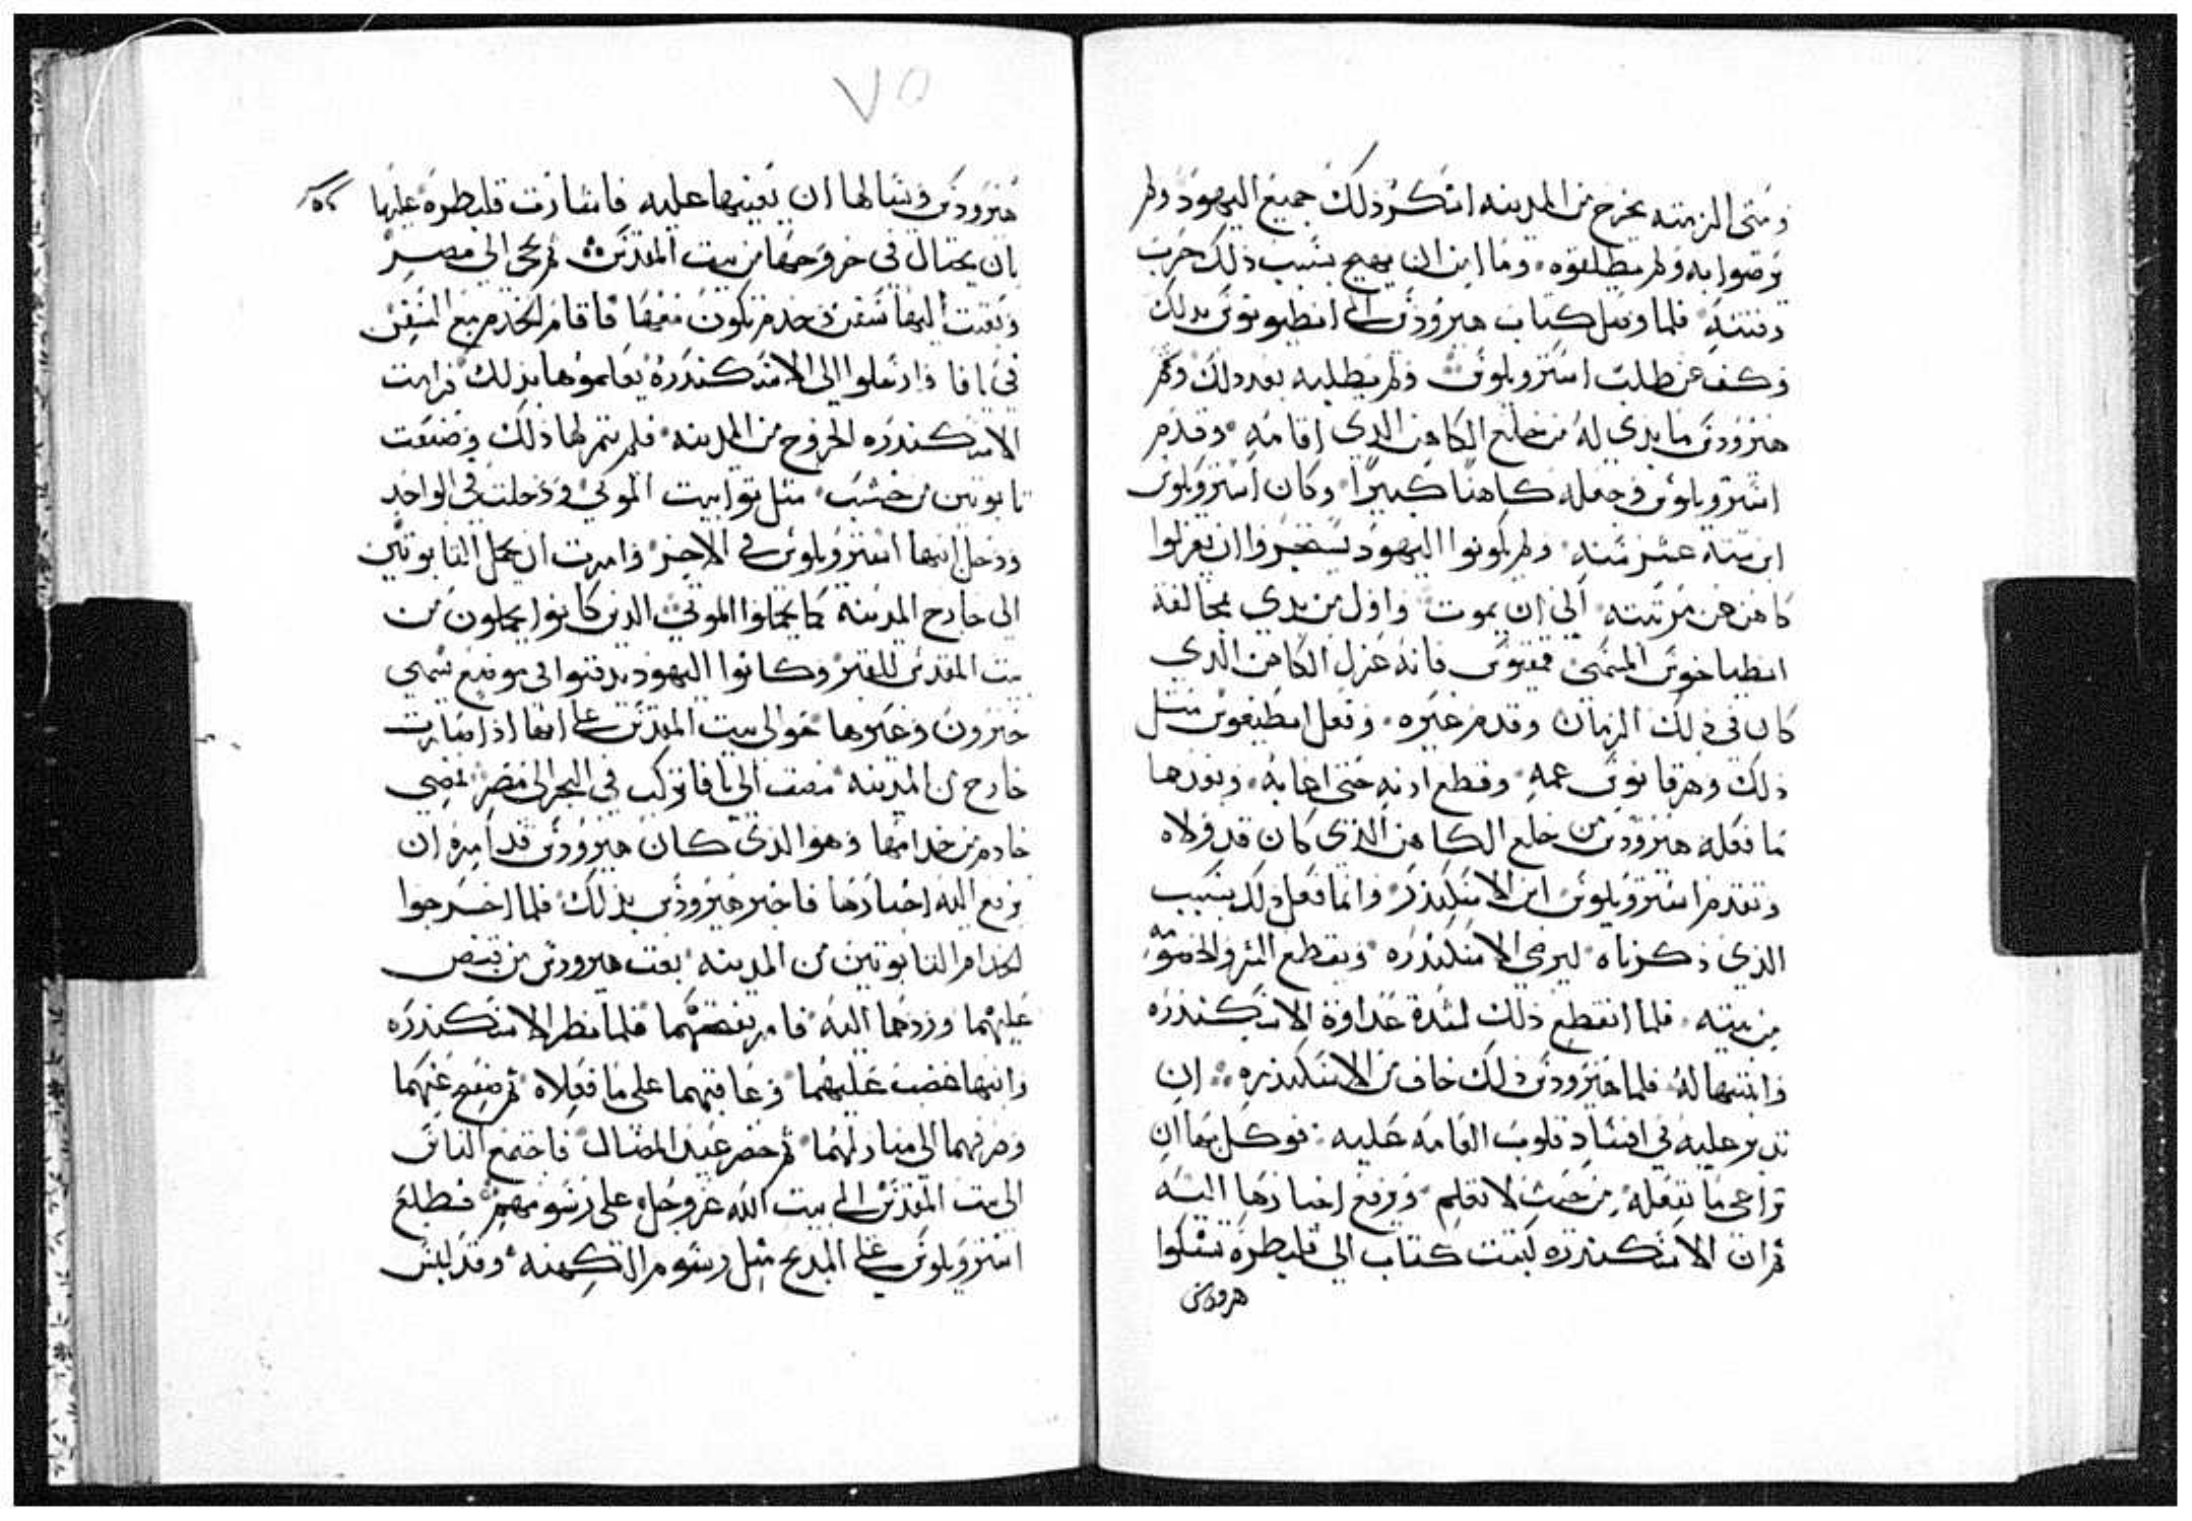 ومتى الزمته يخرج من المدينه انكر ذلك جميع اليهود ولم
يرضوا به ولم يطلقوه وما امن ان يهيج بسبب ذلك حرب
وفتنه فلما وصل كتاب هيرودس الى انطيونوس بذلك
وكف عن طلب استروبلوس ولم يطلبه بعد ذلك وتمم
هيرودس ما بدي له من خلع الكاهن الدي اقامه وقدم
استروبلوس وجعله كاهنا كبيرا وكان استروبلوس
ابن ستة عشر سنه ولم يكونوا اليهود يستخيروا ان يعزلوا
كاهن من مرتبته الى ان يموت واول من بدي بمخالفة
انطياخوس المسمى فانه عزل الكاهن الدي
كان في ذلك الزمان وقدم غيره وفعل انطيغوس مثل
ذلك وهرقانوس عمه وقطع ادنه حتى اعابه وبعدها
ما فعله هيرودس من خلع الكاهن الذي كان قد ولاه
وتقدم استروبلوس ابن الاسكندر وانما فعل ذلك بسبب
الذي ذكرناه ليرضي الاسكندره ويقطع الشر والخصومه
من بيته فلما انقطع ذلك لشدة عداوة الاسكندره
وابنتها له فلما هيرودس ذلك خاف من الاسكندره ان
تدبر عليه في افساد قلوب العامه عليه فوكل بها ان
تراعى ما تفعله من حيث لا تعلم ويرفع اخبارها اليه
ثم ان الاسكندره كتبت كتاب الى قلبطره تشكوا
هرودس
٧٥
هيرودس وتسالها ان تعينها عليه فاشارت قلبطره عليها
بان يحتال في خروجها من بيت المقدس ثم تجي الى مصر
وبعتت اليها سفن وخدم يكون معها فاقام الخدم مع السفن
في يافا وارسلوا الى الاسكندره يعلموها بذلك فرامت
الاسكندره الخروج من المدينه فلم يتم لها ذلك وصنعت
تابوتين من خشب مثل توابيت الموتى ودخلت في الواحد
ودخل ابنها استروبلوس في الاخر وامرت ان يحمل التابوتين
الى خارج المدينة كما يحملوا الموتى الدين كانوا يحملون من
بيت المقدس للقبر وكانوا اليهود يدفنوا في موضع يسمى
وغيرها حوالي بيت المقدس على انها اذا صارت
خارج من المدينه مضت الى يافا وتركب في البحر الى مصر فمضى
خادم من خدامها وهو الذي كان هيرودس قد امره ان
يرفع اليه اخبارها فاخبر هيرودس بذلك فلما اخرجوا
الخدام التابوتين من المدينه بعت هيرودس من قبض
عليهما وردهما اليه فامر بفتحهما فلما نظر الاسكندره
وابنها غضب عليهما وعاقبهما على ما فعلاه ثم صفح عنهما
وصرفهما الى منازلهما ثم حضر عيد المضال فاجتمع الناس
الى بيت المقدس الى بيت الله عز وجل على رسومهم فطلع
استروبلوس على المدبح مثل رسوم الكهنه وقد لبس